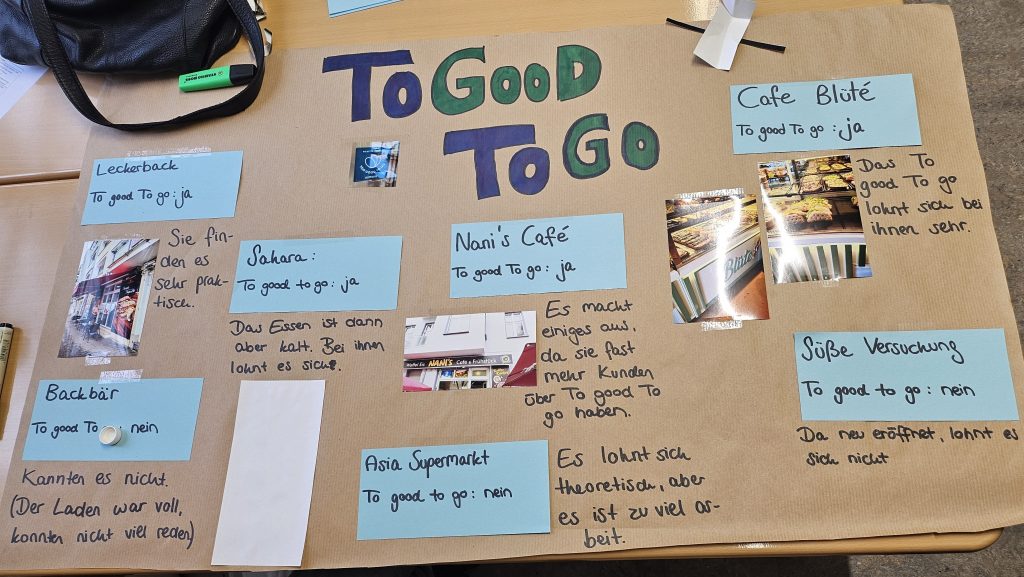 TO GOOD
TO GO
Leckerback
To good To go: ja
Sie fin-
den es
sehr prak-
tisch.
Sahara:
To good to go: ja
Das Essen ist dann
aber kalt. Bei ihnen
lohnt es sich.
Nani's Café
To good To go: ja
NANI'S Café & Frühstück
Es macht
einiges aus,
da sie fast
mehr Kunden
über To good To
go haben.
Cafe Blüté
To good To go: ja
Das To
good To go
lohnt sich bei
ihnen sehr.
Blüte
Backbär
To good To : nein
Kannten es nicht.
(Der Laden war voll,
konnten nicht viel reden)
Asia Supermarkt
To good to go: nein
Es lohnt sich
theoretisch, aber
es ist zu viel ar-
beit.
Süße Versuchung
To good to go: nein
Da neu eröffnet, lohnt es
sich nicht